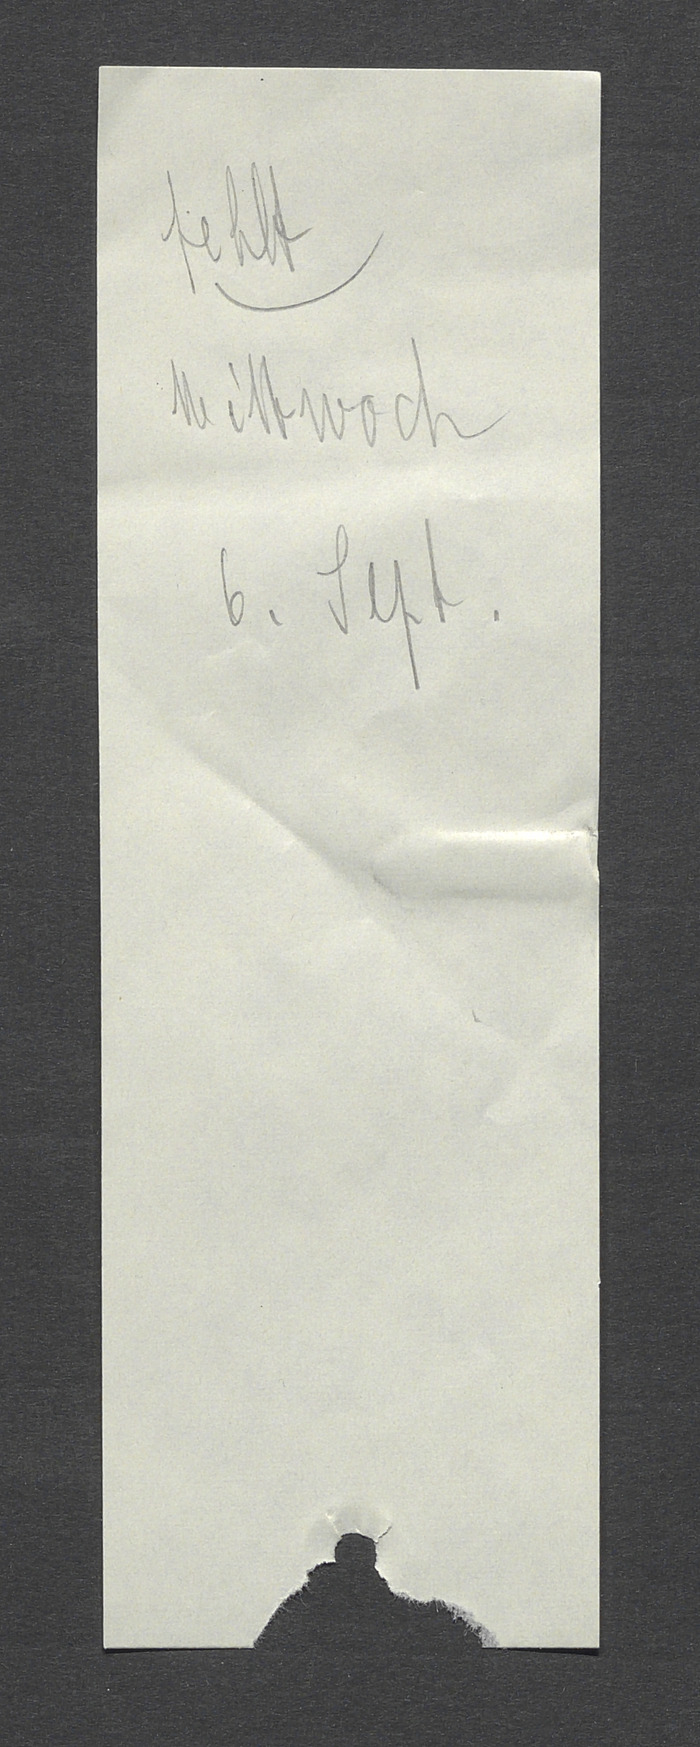 fehlt
Mittwoch
6. Sept.